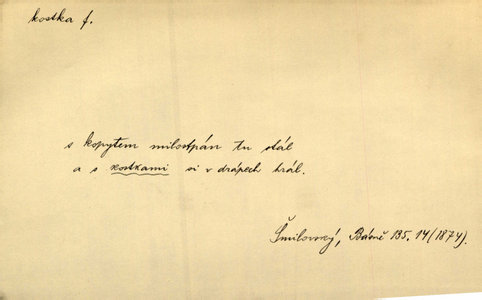 kostka f.
s kopytem milostpán tu stál
a s kostkami si v drápech hrál.
Šmilovský, Básně 135. 14 (1874).